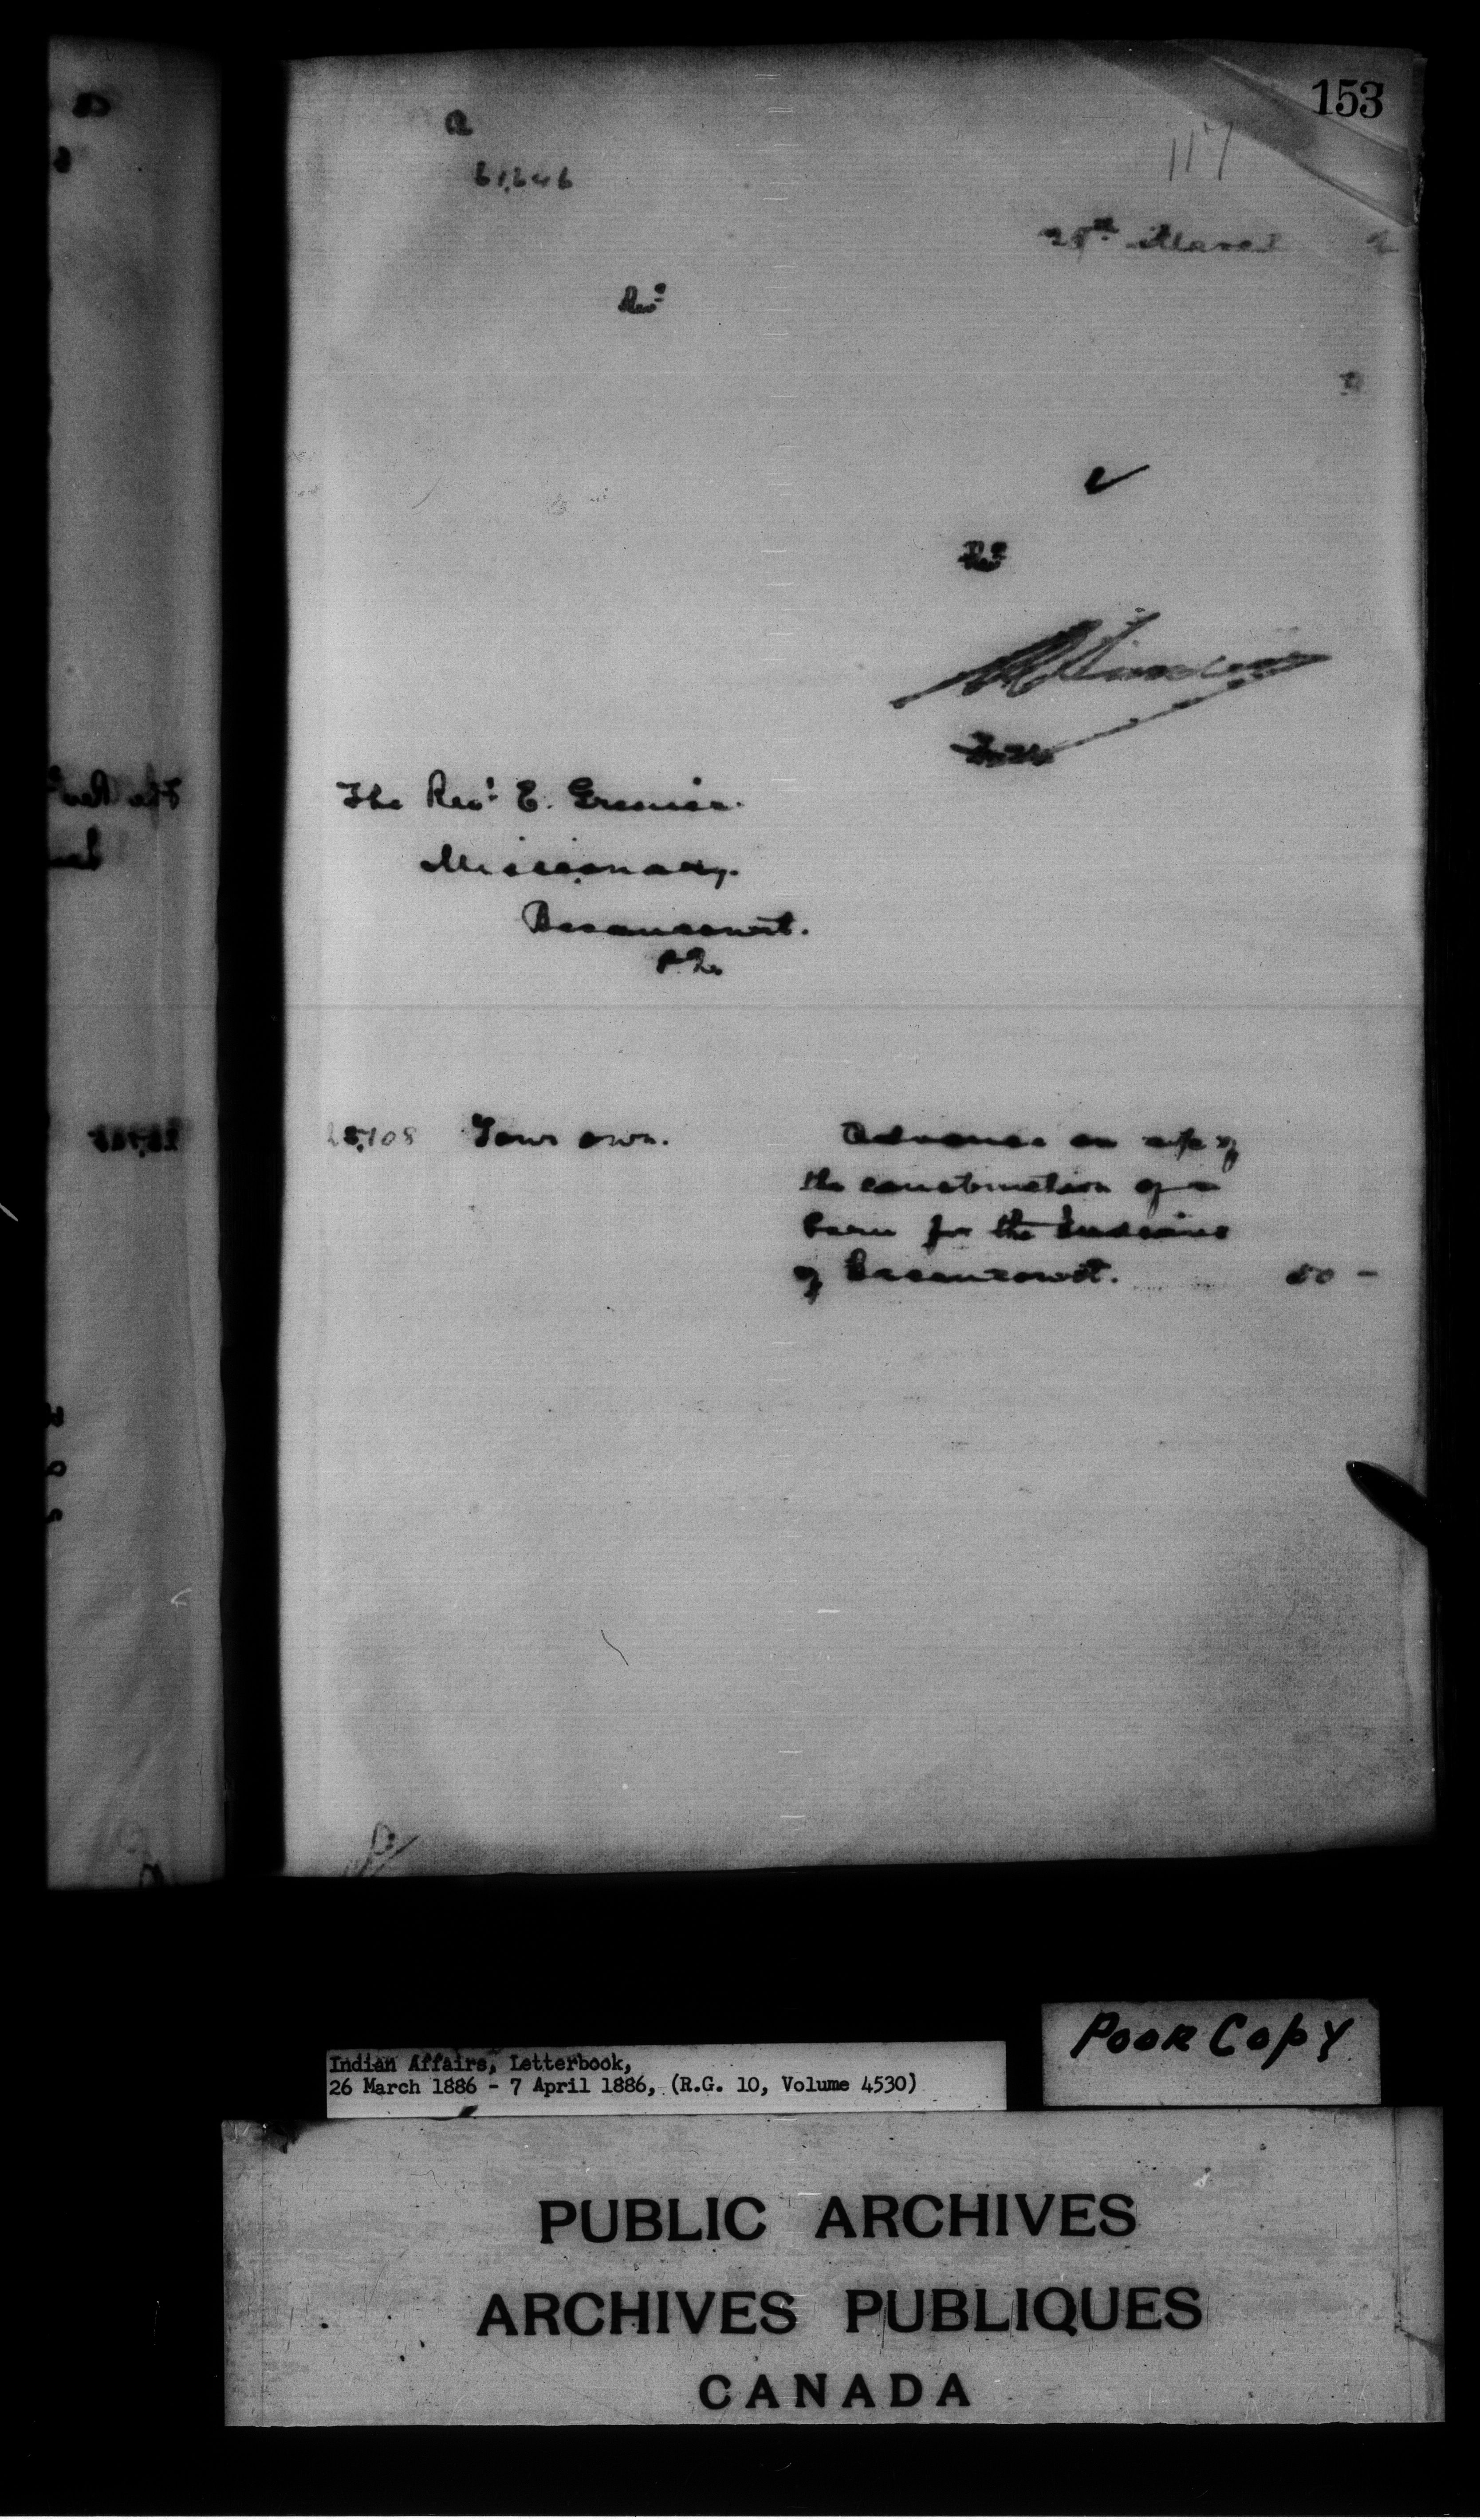 153
117
a
61,646
29th March
Revd
Revd
The Revd E. Grenier.
Missionary.
Becancourt.
P.Q.
28,108 Your own. Advance on a/c of
the construction of a
barn for the Indians
of Becancourt. 50 -
Poor Copy
Indian Affairs, Letterbook,
26 March 1886 - 7 April 1886, (R.G. 10, Volume 4530)
PUBLIC ARCHIVES
ARCHIVES PUBLIQUES
CANADA